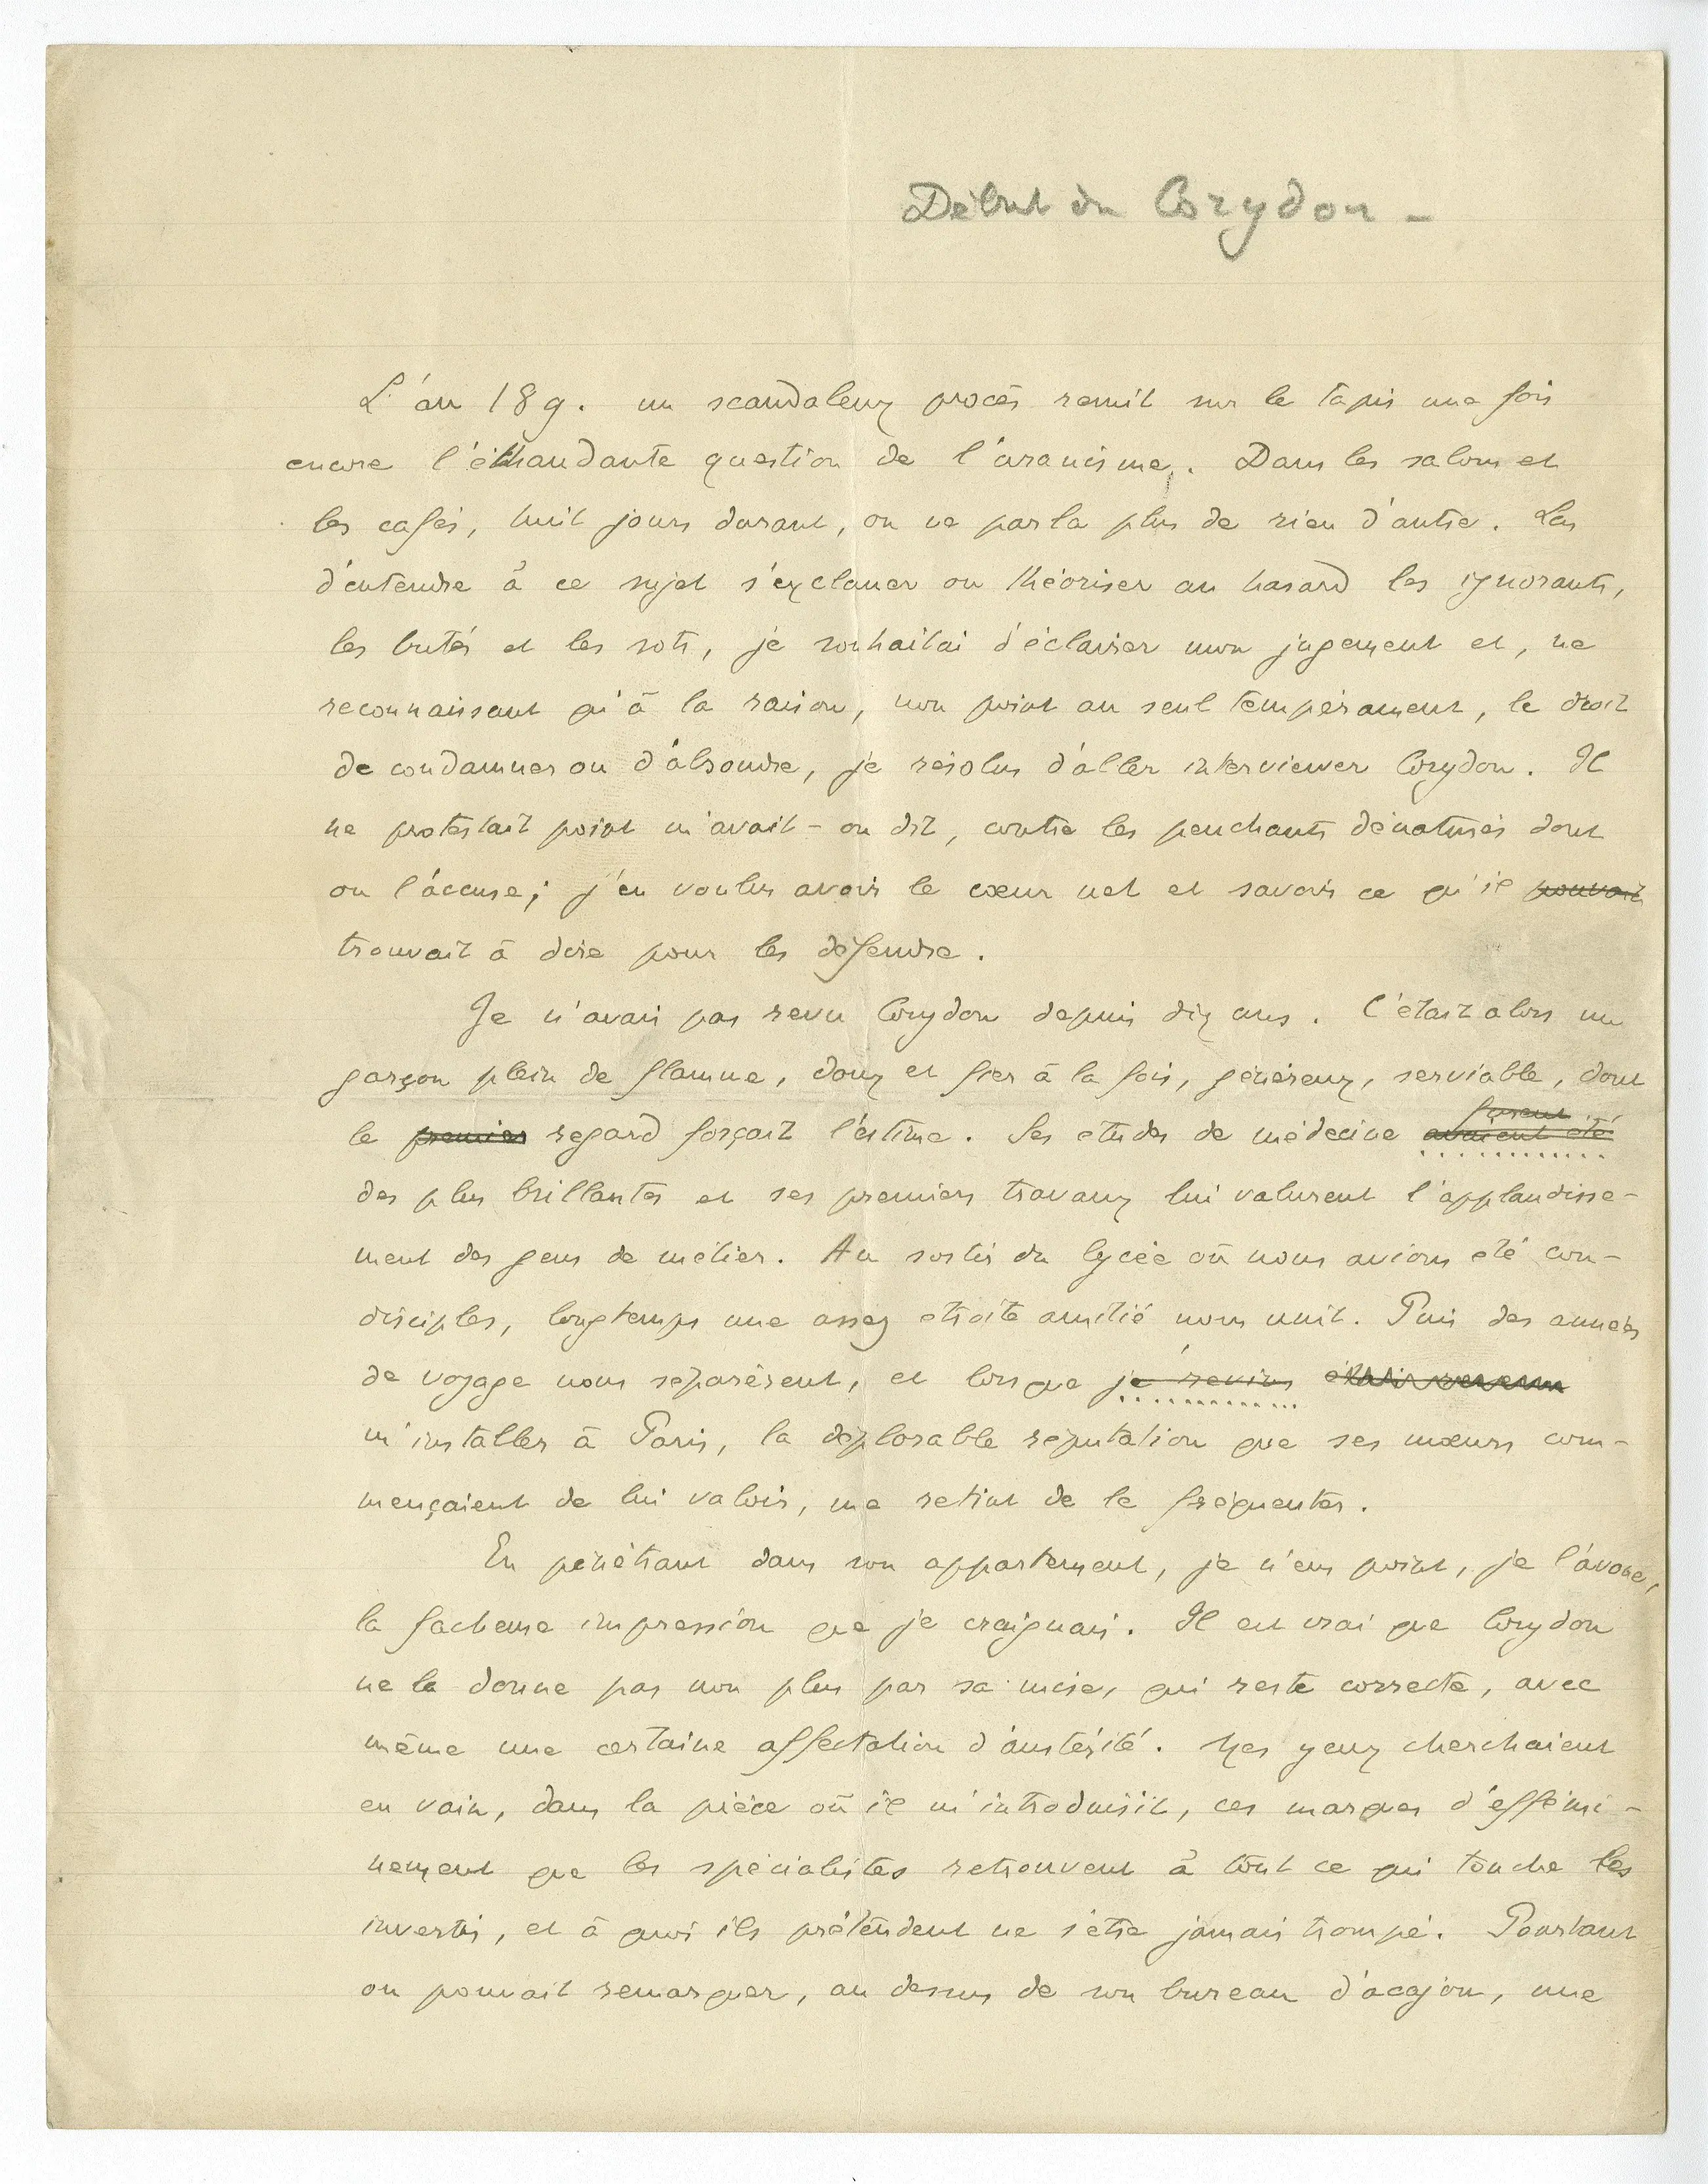 Début du Corydon –
L'an 189. un scandaleux procès remit sur le tapis une fois
encore l'échaudante question de l'uranisme. Dans les salons et
les cafés, huit jours durant, on ne parla plus de rien d'autre. Las
d'entendre à ce sujet s'exclamer ou théoriser au hasard les ignorants,
les butés et les sots, je souhaitai d'éclairer mon jugement et, ne
reconnaissant qu'à la raison, non point au seul tempérament, le droit
de condamner ou d'absoudre, je résolus d'aller interviewer Corydon. Il
ne protestait point m'avait-on dit, contre les penchants dénaturés dont
on l'accuse; j'en voulus avoir le cœur net et savoir ce qu'il pouvait
trouvait à dire pour les défendre.
Je n'avais pas revu Corydon depuis dix ans. C'était alors un
garçon plein de flamme, doux et fier à la fois, généreux, serviable, dont
le premier regard forçait l'estime. Ses études de médecine avaient été
furent
des plus brillantes et ses premiers travaux lui valurent l'applaudisse-
ment des gens de métier. Au sortir du lycée où nous avions été con-
disciples, longtemps une assez étroite amitié nous unit. Puis des années
de voyage nous séparèrent, et lorsque je revins étais revenu
m'installer à Paris, la déplorable réputation que ses mœurs com-
mençaient de lui valoir, me retint de le fréquenter.
En pénétrant dans son appartement, je n'eus point, je l'avoue,
la facheuse impression que je craignais. Il est vrai que Corydon
ne la donne pas non plus par sa mise, qui reste correcte, avec
même une certaine affectation d'austérité. Mes yeux cherchaient
en vain, dans la pièce où il m'introduisit, ces marques d'effémi-
nement que les spécialistes retrouvent à tout ce qui touche les
invertis, et à quoi ils prétendent ne s'être jamais trompé. Pourtant
on pouvait remarquer, au dessus de son bureau d'acajou, une